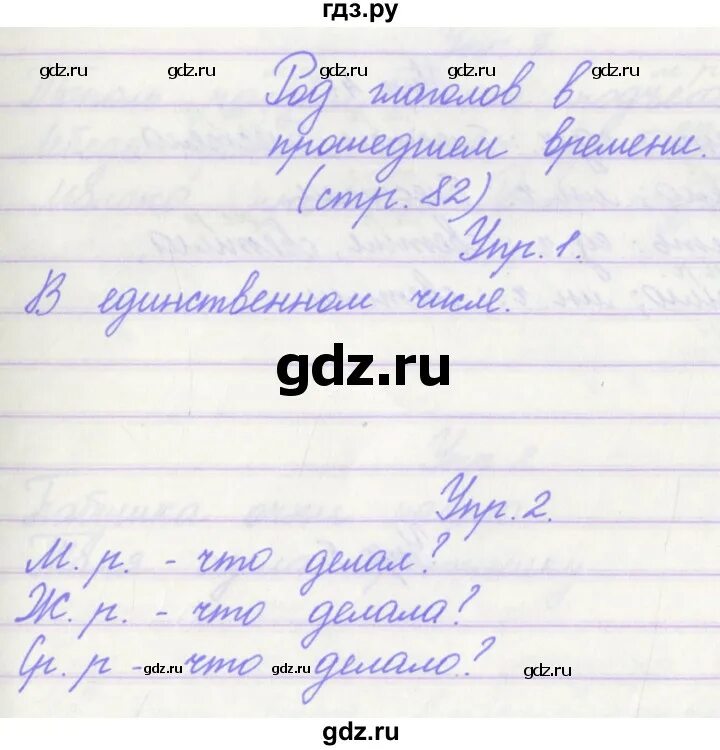 гдз.ру
gdz.ru gdz.ru gdz.ru gdz.ru
Род глаголов в
прошедшем времени.
(стр. 82)
Упр. 1.
В единственном числе.
gdz.ru
Упр. 2.
М. р. - что делал?
Ж. р. - что делала?
Ср. р - что делало?
gdz.ru gdz.ru gdz.ru
gdz.ru